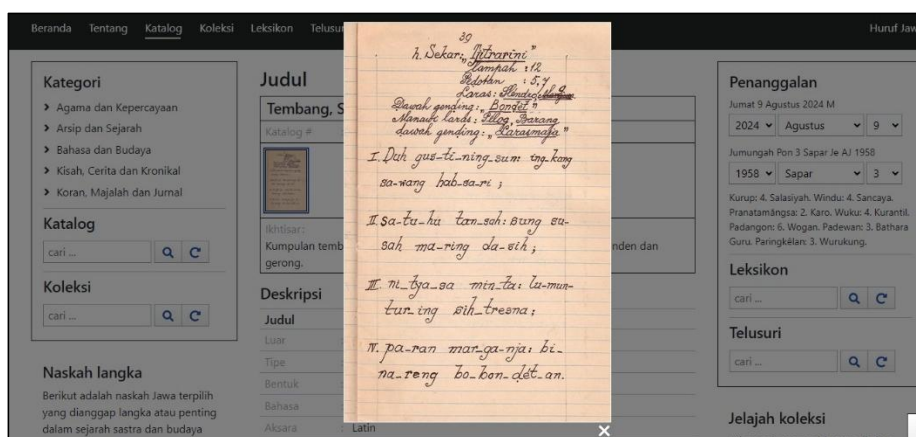 Beranda Tentang Katalog Koleksi Leksikon Telusu
Huruf Jaw
Kategori
> Agama dan Kepercayaan
> Arsip dan Sejarah
> Bahasa dan Budaya
> Kisah, Cerita dan Kronikal
> Koran, Majalah dan Jurnal
Katalog
cari ...
Koleksi
cari ...
Naskah langka
Berikut adalah naskah Jawa terpilih
yang dianggap langka atau penting
dalam sejarah sastra dan budaya
Judul
Tembang, S
Katalog #
Ikhtisar:
Kumpulan temb
nden dan
gerong.
Deskripsi
Judul
Luar
Tipe
Bentuk
Bahasa
Aksara : Latin
39
h. Sekar: "Citrarini"
Lampah : 12
Pedotan : 5,7
Laras: Slendro
Dawah gending: "Bondèt"
Manawi laras: Pélog, Barang
dawah gending: "Larasmaja"
I. Duh gus-ti-ning-sun: ing-kang
sa-wang hab-sa-ri ;
II. Sa-tu-hu tan-soh: sung su-
sah ma-ring da-sih ;
III. ni-tya-sa min-ta: lu-mun-
tur-ing sih-tresna ;
IV. pa-ran mar-ga-nja: bi-
na-reng bo-bon-dét-an.
Penanggalan
Jumat 9 Agustus 2024 M
2024 Agustus 9
Jumungah Pon 3 Sapar Je AJ 1958
1958 Sapar 3
Kurup: 4. Salasiyah. Windu: 4. Sancaya.
Pranatamangsa: 2. Karo. Wuku: 4. Kurantil.
Padangon: 6. Wogan. Padewan: 3. Bathara
Guru. Paringkêlan: 3. Wurukung.
Leksikon
cari ...
Telusuri
cari ...
Jelajah koleksi